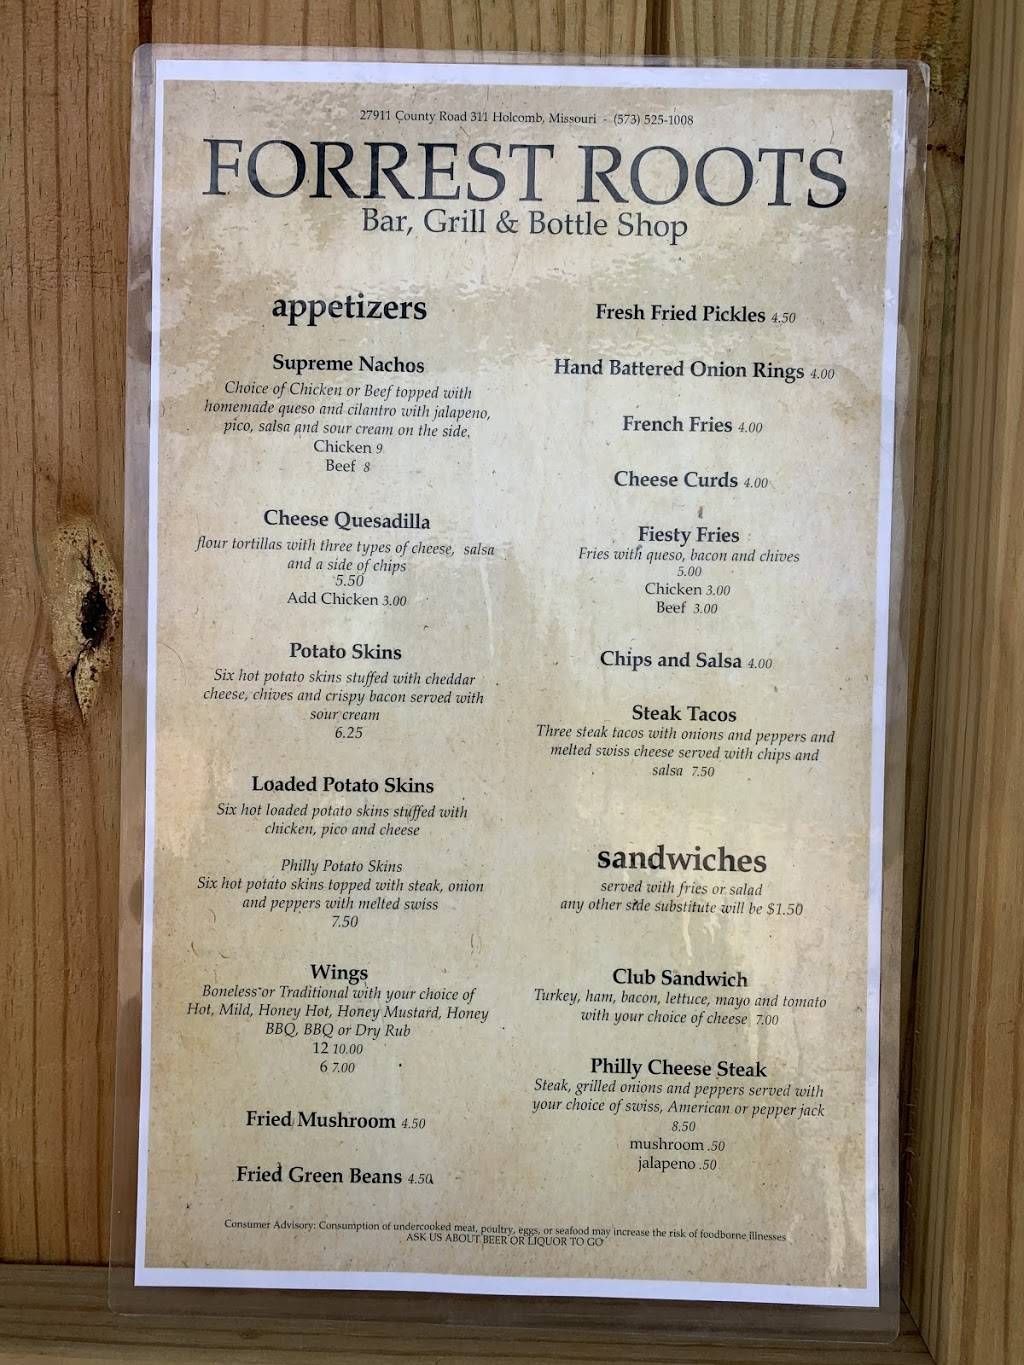 27911 County Road 311 Holcomb, Missouri - (573) 525-1008
FORREST ROOTS
Bar, Grill & Bottle Shop
appetizers
Supreme Nachos
Choice of Chicken or Beef topped with
homemade queso and cilantro with jalapeno,
pico, salsa and sour cream on the side.
Chicken 9
Beef 8
Cheese Quesadilla
flour tortillas with three types of cheese, salsa
and a side of chips
5.50
Add Chicken 3.00
Potato Skins
Six hot potato skins stuffed with cheddar
cheese, chives and crispy bacon served with
sour cream
6.25
Loaded Potato Skins
Six hot loaded potato skins stuffed with
chicken, pico and cheese
Philly Potato Skins
Six hot potato skins topped with steak, onion
and peppers with melted swiss
7.50
Wings
Boneless or Traditional with your choice of
Hot, Mild, Honey Hot, Honey Mustard, Honey
BBQ, BBQ or Dry Rub
12 10.00
6 7.00
Fried Mushroom 4.50
Fried Green Beans 4.50
Fresh Fried Pickles 4.50
Hand Battered Onion Rings 4.00
French Fries 4.00
Cheese Curds 4.00
Fiesty Fries
Fries with queso, bacon and chives
5.00
Chicken 3.00
Beef 3.00
Chips and Salsa 4.00
Steak Tacos
Three steak tacos with onions and peppers and
melted swiss cheese served with chips and
salsa 7.50
sandwiches
served with fries or salad
any other side substitute will be $1.50
Club Sandwich
Turkey, ham, bacon, lettuce, mayo and tomato
with your choice of cheese 7.00
Philly Cheese Steak
Steak, grilled onions and peppers served with
your choice of swiss, American or pepper jack
8.50
mushroom .50
jalapeno .50
Consumer Advisory: Consumption of undercooked meat, poultry, eggs, or seafood may increase the risk of foodborne illnesses
ASK US ABOUT BEER OR LIQUOR TO GO